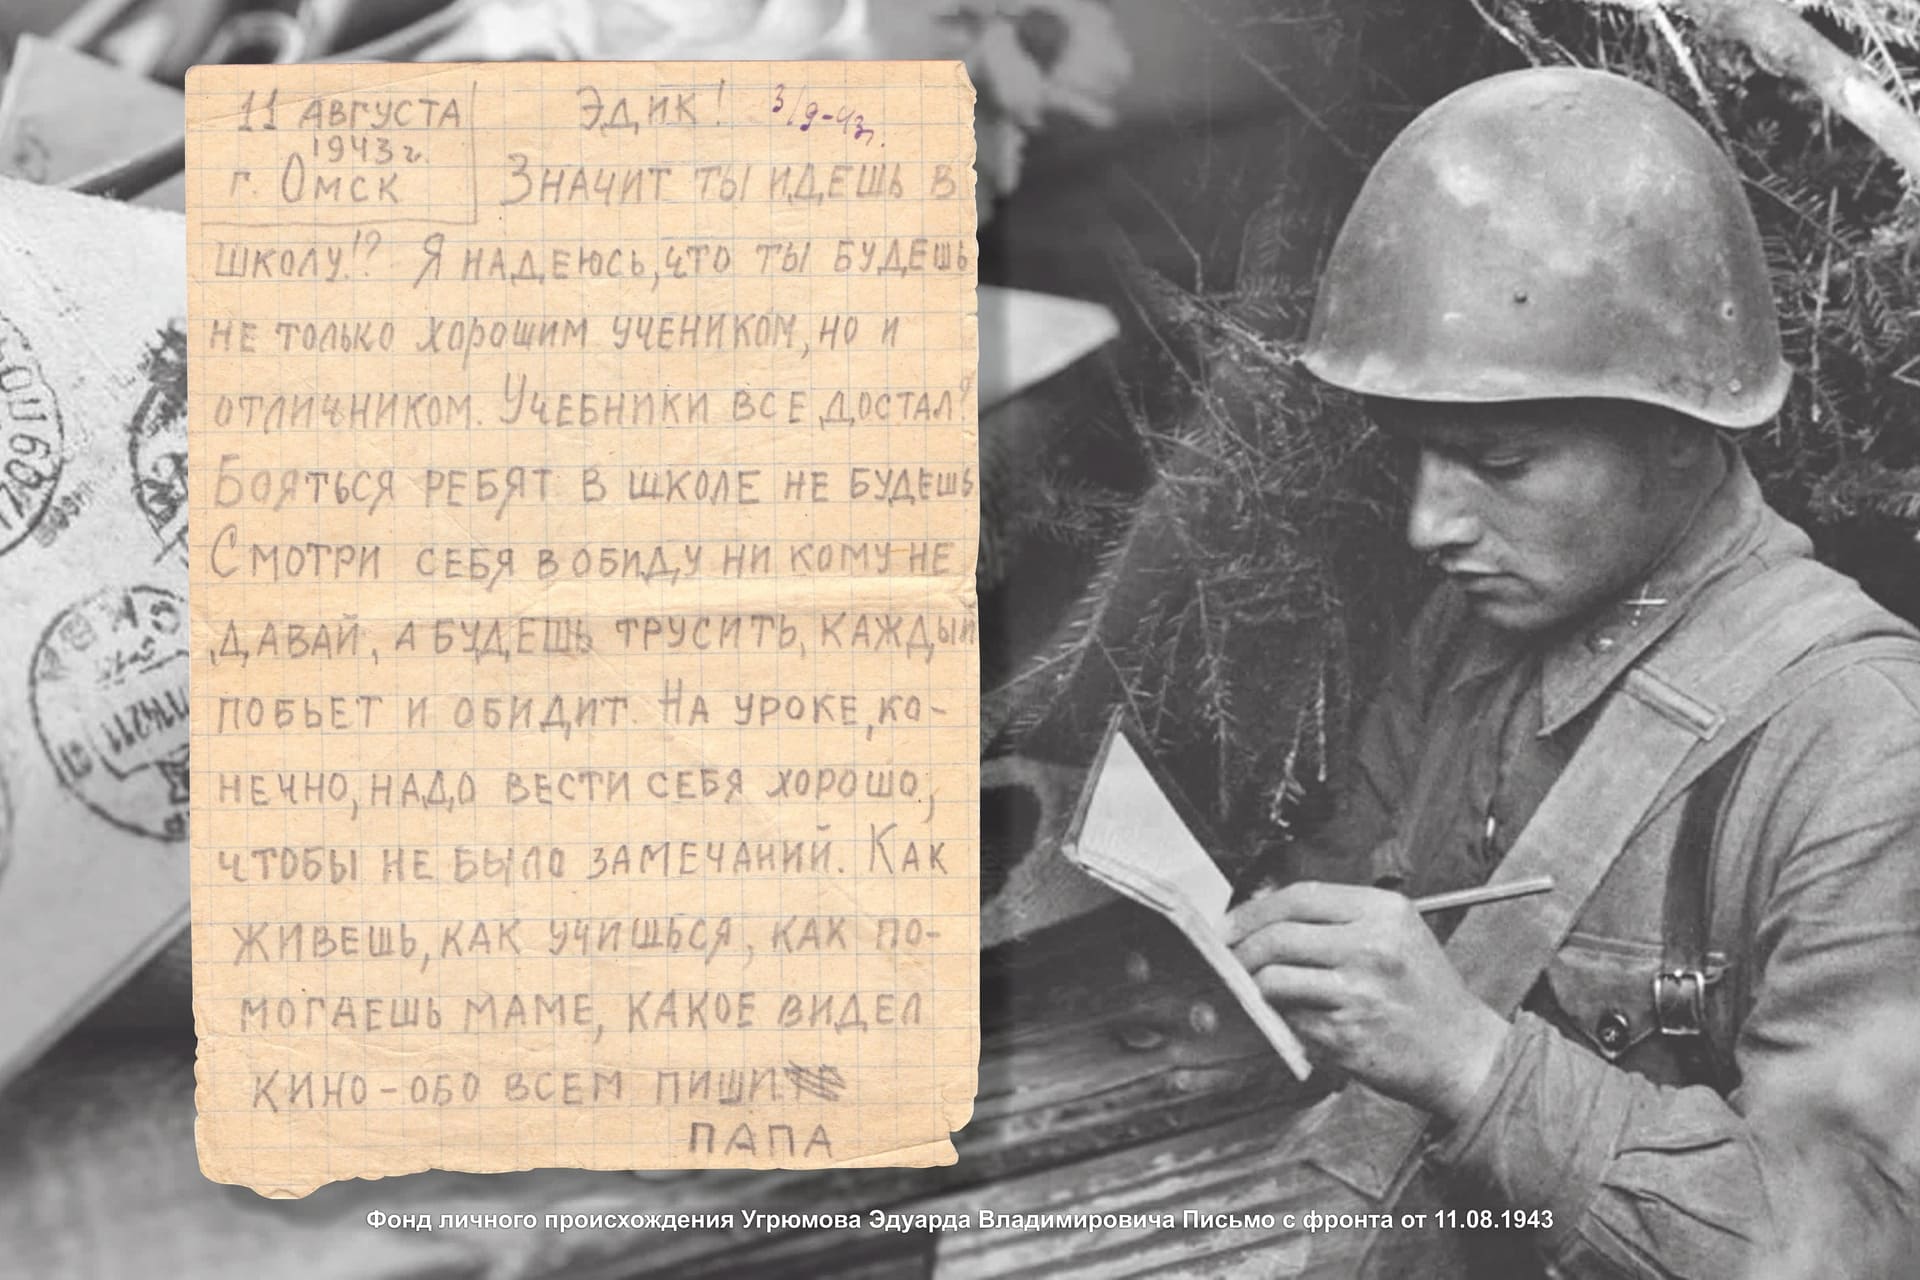 11 АВГУСТА
1943 г.
г. ОМСК
ЭДИК!
3/9-43г.
ЗНАЧИТ ТЫ ИДЕШЬ В
ШКОЛУ!? Я НАДЕЮСЬ, ЧТО ТЫ БУДЕШЬ
НЕ ТОЛЬКО ХОРОШИМ УЧЕНИКОМ, НО И
ОТЛИЧНИКОМ. УЧЕБНИКИ ВСЕ ДОСТАЛ?
БОЯТЬСЯ РЕБЯТ В ШКОЛЕ НЕ БУДЕШЬ
СМОТРИ СЕБЯ В ОБИДУ НИ КОМУ НЕ
ДАВАЙ, А БУДЕШЬ ТРУСИТЬ, КАЖДЫЙ
ПОБЬЕТ И ОБИДИТ. НА УРОКЕ, КО-
НЕЧНО, НАДО ВЕСТИ СЕБЯ ХОРОШО,
ЧТОБЫ НЕ БЫЛО ЗАМЕЧАНИЙ. КАК
ЖИВЕШЬ, КАК УЧИШЬСЯ, КАК ПО-
МОГАЕШЬ МАМЕ, КАКОЕ ВИДЕЛ
КИНО - ОБО ВСЕМ ПИШИ
ПАПА
Фонд личного происхождения Угрюмова Эдуарда Владимировича Письмо с фронта от 11.08.1943